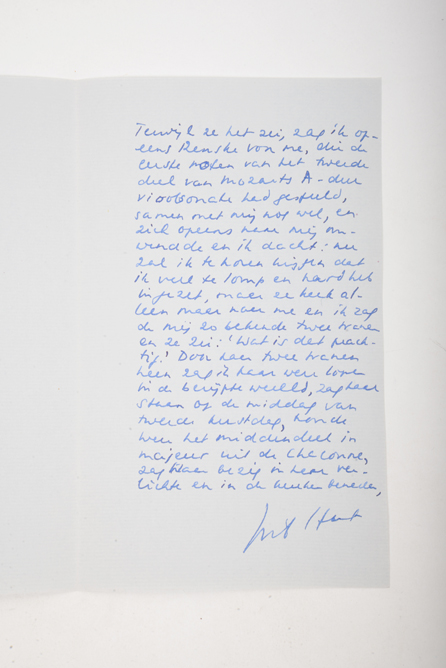 Terwijl ze het zei, zag ik op-
eens Renske voor me, die de
eerste noten van het tweede
deel van Mozarts A-dur
vioolsonate had gespeeld,
samen met mij nog wel, en
zich opeens naar mij om-
wendde en ik dacht: nu
zal ik te horen krijgen dat
ik veel te lomp en hard heb
ingezet, maar ze keek al-
leen maar naar me en ik zag
de mij zo bekende twee tranen
en ze zei: 'Wat is dat prach-
tig.' Door haar twee tranen
heen zag ik haar weer lopen
in de berijpte wereld, zag haar
staan op de middag van
tweede kerstdag, hoorde
weer het middendeel in
majeur uit de Chaconne,
zag haar bezig in haar ver-
lichte en in de keuken beneden,